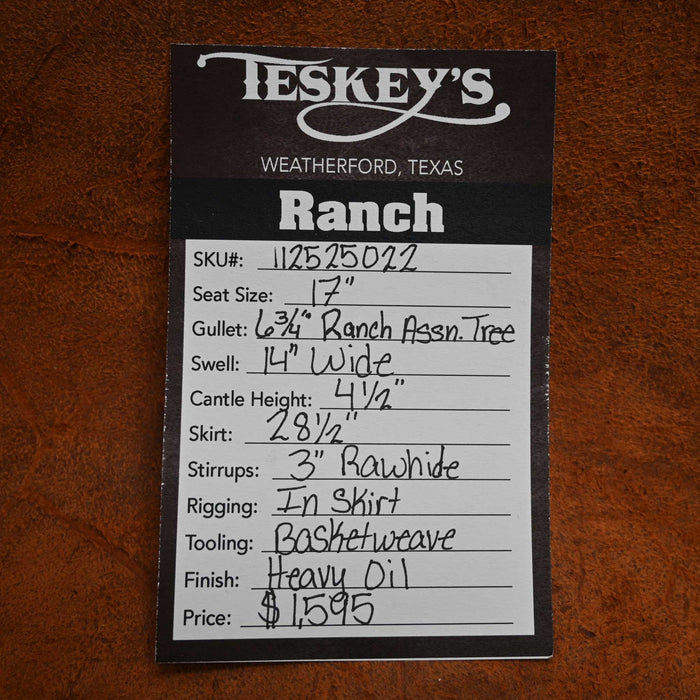 TESKEY'S
WEATHERFORD, TEXAS
Ranch
SKU#: 112525022
Seat Size: 17"
Gullet: 6 3/4" Ranch Assn. Tree
Swell: 14" Wide
Cantle Height: 4 1/2"
Skirt: 28 1/2"
Stirrups: 3" Rawhide
Rigging: In Skirt
Tooling: Basketweave
Finish: Heavy Oil
Price: $1,595